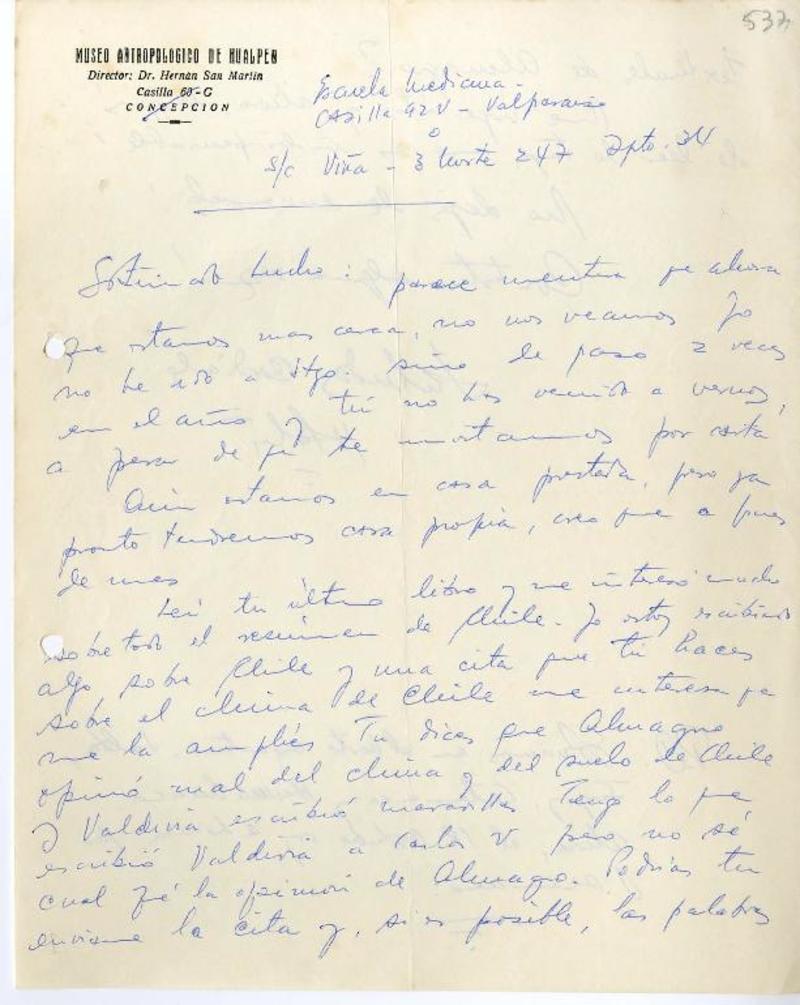 537
MUSEO ANTROPOLOGICO DE HUALPEN
Director: Dr. Hernan San Martin
Casilla 60-G
CONCEPCION
Escuela Medicina -
Casilla 92 V - Valparaiso
o
s/c Viña - 3 Norte 247 Dpto. 34
Estimado Lucho: parece mentira que ahora
que estamos mas cerca, no nos veamos Yo
no he ido a Stgo. sino de paso 2 veces
en el año y tú no has venido a vernos,
a pesar de qe te invitamos por carta
Aún estamos en casa prestada, pero ya
pronto tendremos casa propia, creo que a fines
de mes
Leí tu último libro y me interesó mucho
sobre todo el resúmen de Chile. Yo estoy escribiendo
algo sobre Chile y una cita que tú haces
sobre el clima de Chile me interesa qe
me la amplíes Tu dices que Almagro
opinó mal del clima y del suelo de Chile
y Valdivia escribió maravillas Tengo lo que
escribió Valdivia a Carlos V pero no sé
cual fué la opinión de Almagro. Podrías tu
enviarme la cita y, si es posible, las palabras